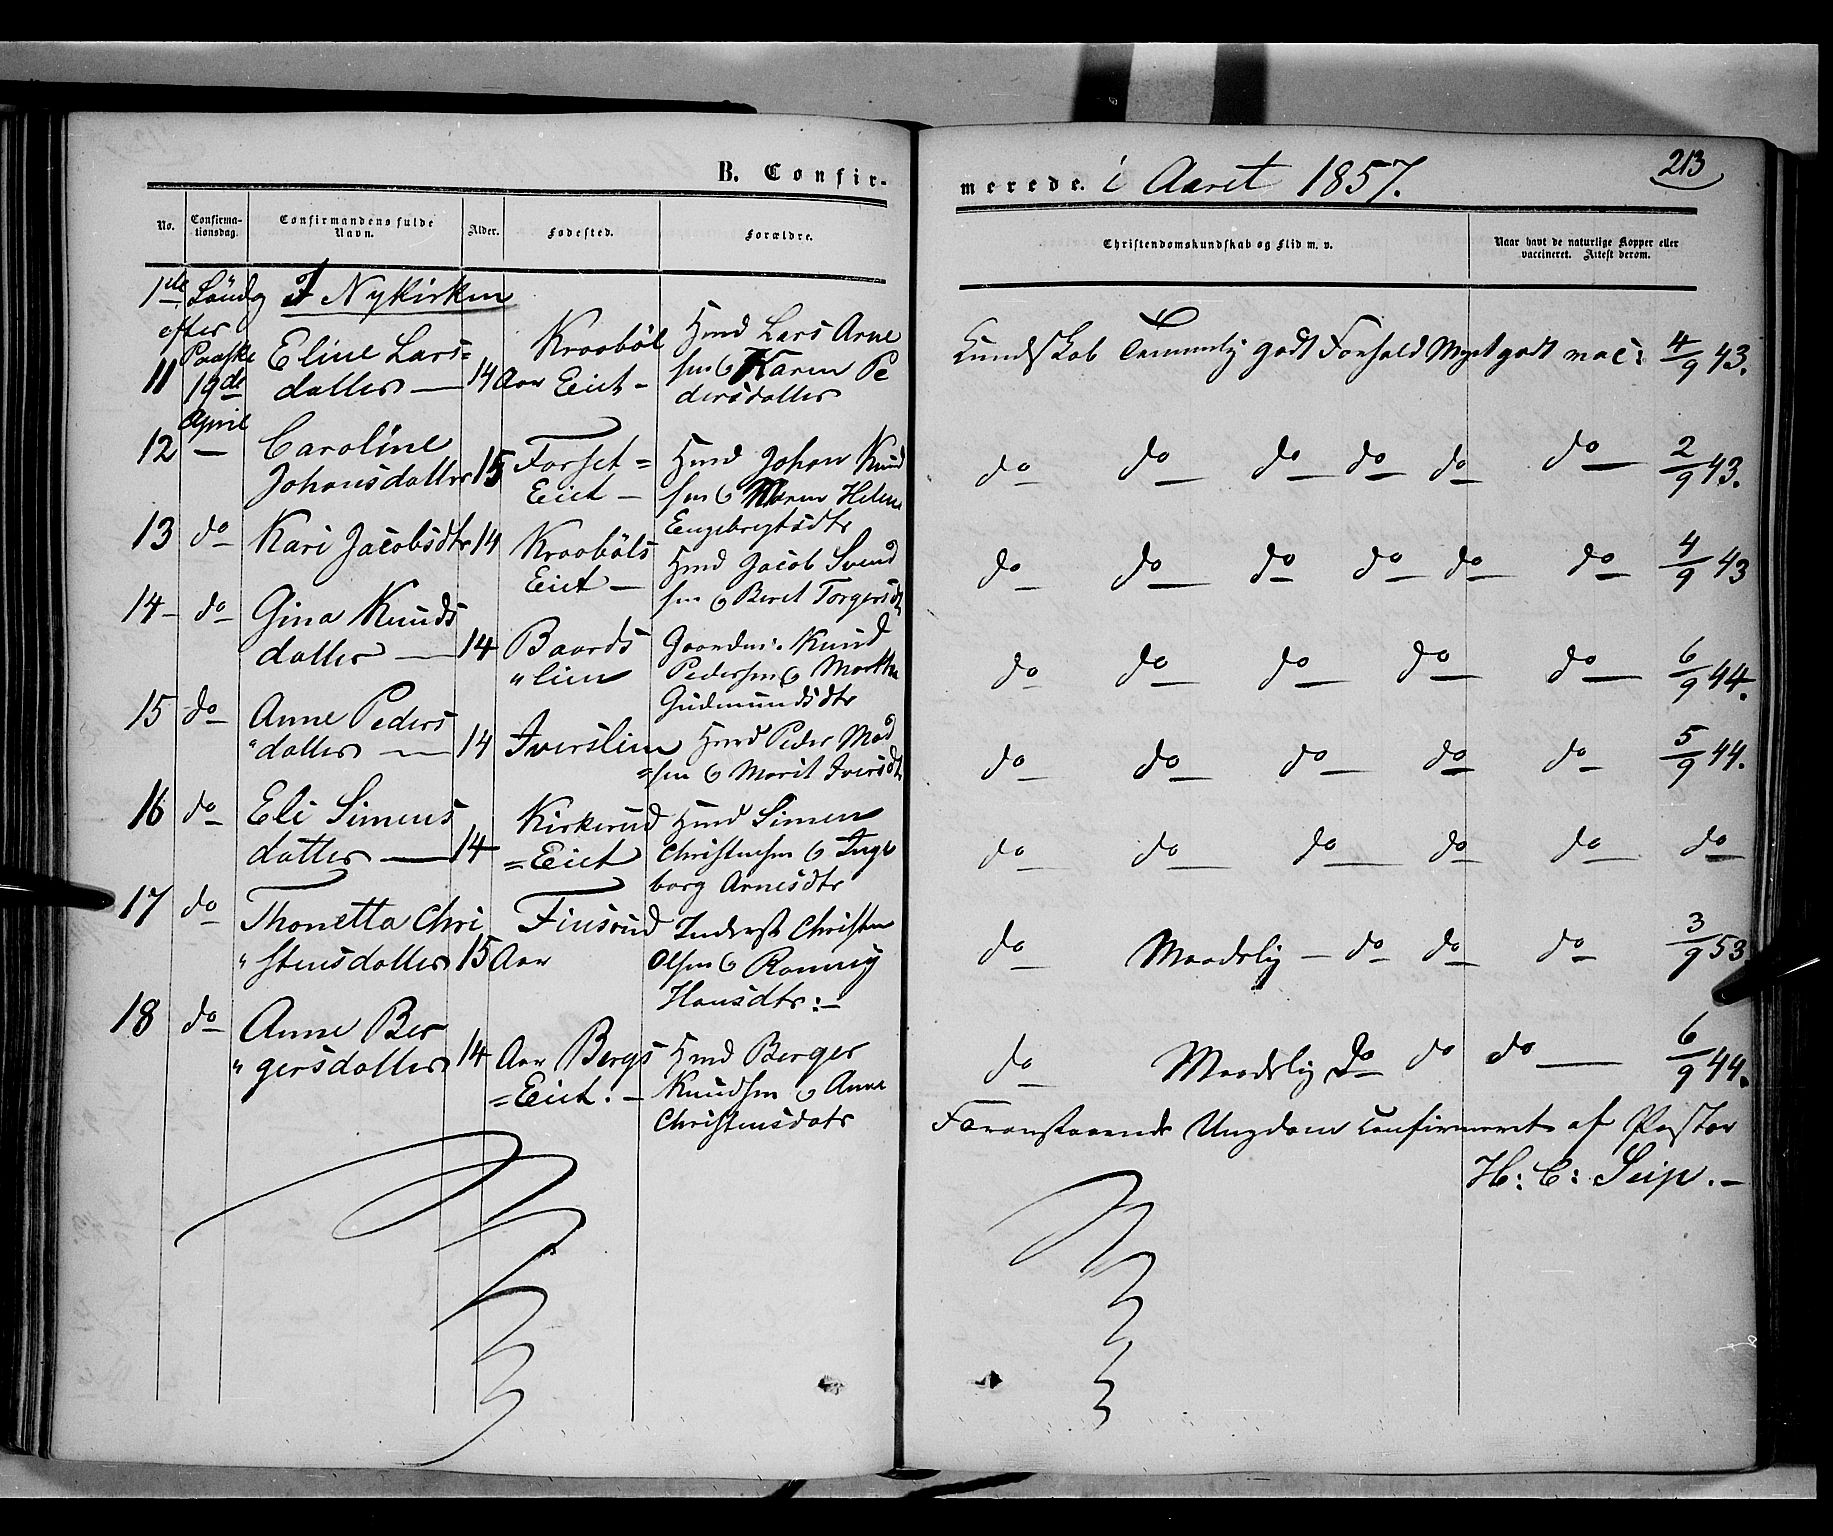 B. Confir-
merede. i Aaret 1857.
213
No.
Confirma-
tionsdag.
Confirmandens fulde
Navn.
Alder.
Fødested.
Forældre.
Christendomskundskab og Flid m. v.
Naar havt de naturlige Kopper eller
vaccineret. Attest derom.
1ste Søndg I Nykirken
efter
Paaske
19de
April
11 Eline Lars=
datter — 14 Aar
Kraabøl
Eiet -
Hmd Lars Arne
sen & Karen Pe
dersdatter
Kundskab Temmelig godt Forhold Meget godt vac: 4/9 43.
12 — Caroline
Johansdatter 15
Forset=
Eiet —
Hmd Johan Knud
sen & Maren Helene
Engebregtsdtr
do do do do do do 2/9 43.
13 do Kari Jacobsdtr 14
Kraabøls
Eiet —
Hmd Jacob Svend
sen & Beret Torgersdtr
do do do do do do 4/9 43
14 - do Gina Knuds
datter — 14
Baards
"lien
Gaardm: Knud
Pedersen & Marthe
Gudmundsdtr
do do do do do 6/9 44.
15 do Anne Peders
"datter — 14
Iverslien
Hmd Peder Mad
=sen & Marit Iversdtr
do do do do do 5/9 44.
16 do Eli Simens
datter — 14
Kirkerud
=Eiet
Hmd Simen
Christensen & Inge
borg Arnesdtr
do do do do do do
17 do Thonetta Chri
"stensdatter 15 Aar
Fiusrud
Inderst Christen
Olsen & Ronnug
Hansdtr:-
do Maadelig — do do do 3/9 53
18 do Anne Ber
"gersdatter 14 Aar
Bergs
=Eiet. -
Hmd Berger
Knudsen & Anne
Christensdatr
do Maadelig do do do 6/9 44.
Foranstaaende Ungdom confirmeret af Pastor
H: C: Seip. -